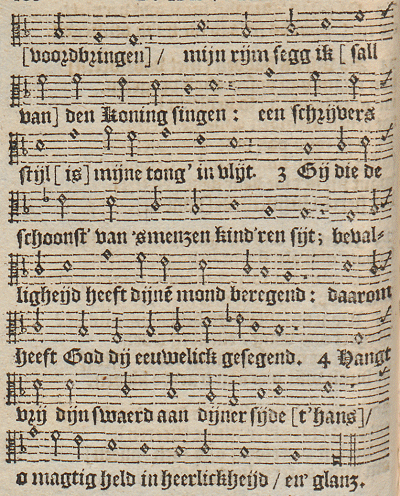 [voordbringen]/ mijn rijm segg ik [sall
van] den Koning singen: een schrijvers
stijl [is] mijne tong' in vlijt. 3 Gij die de
schoonst' van 'smenzen kind'ren sijt; beval-
ligheijd heeft dijnē mond beregend: daarom
heeft God dij eeuwelick gesegend. 4 Hangt
vrij dijn swaerd aan dijner sijde [t'hans]/
o magtig held in heerlickheijd / en' glanz.